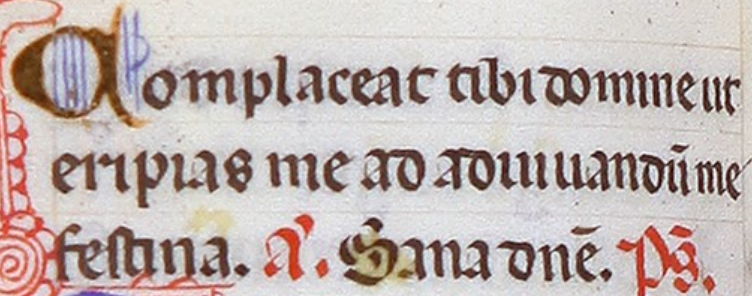 Complaceat tibi domine ut
eripias me ad adiuuandū me
festina. A̓. Sana dn̄e. Ps̄.